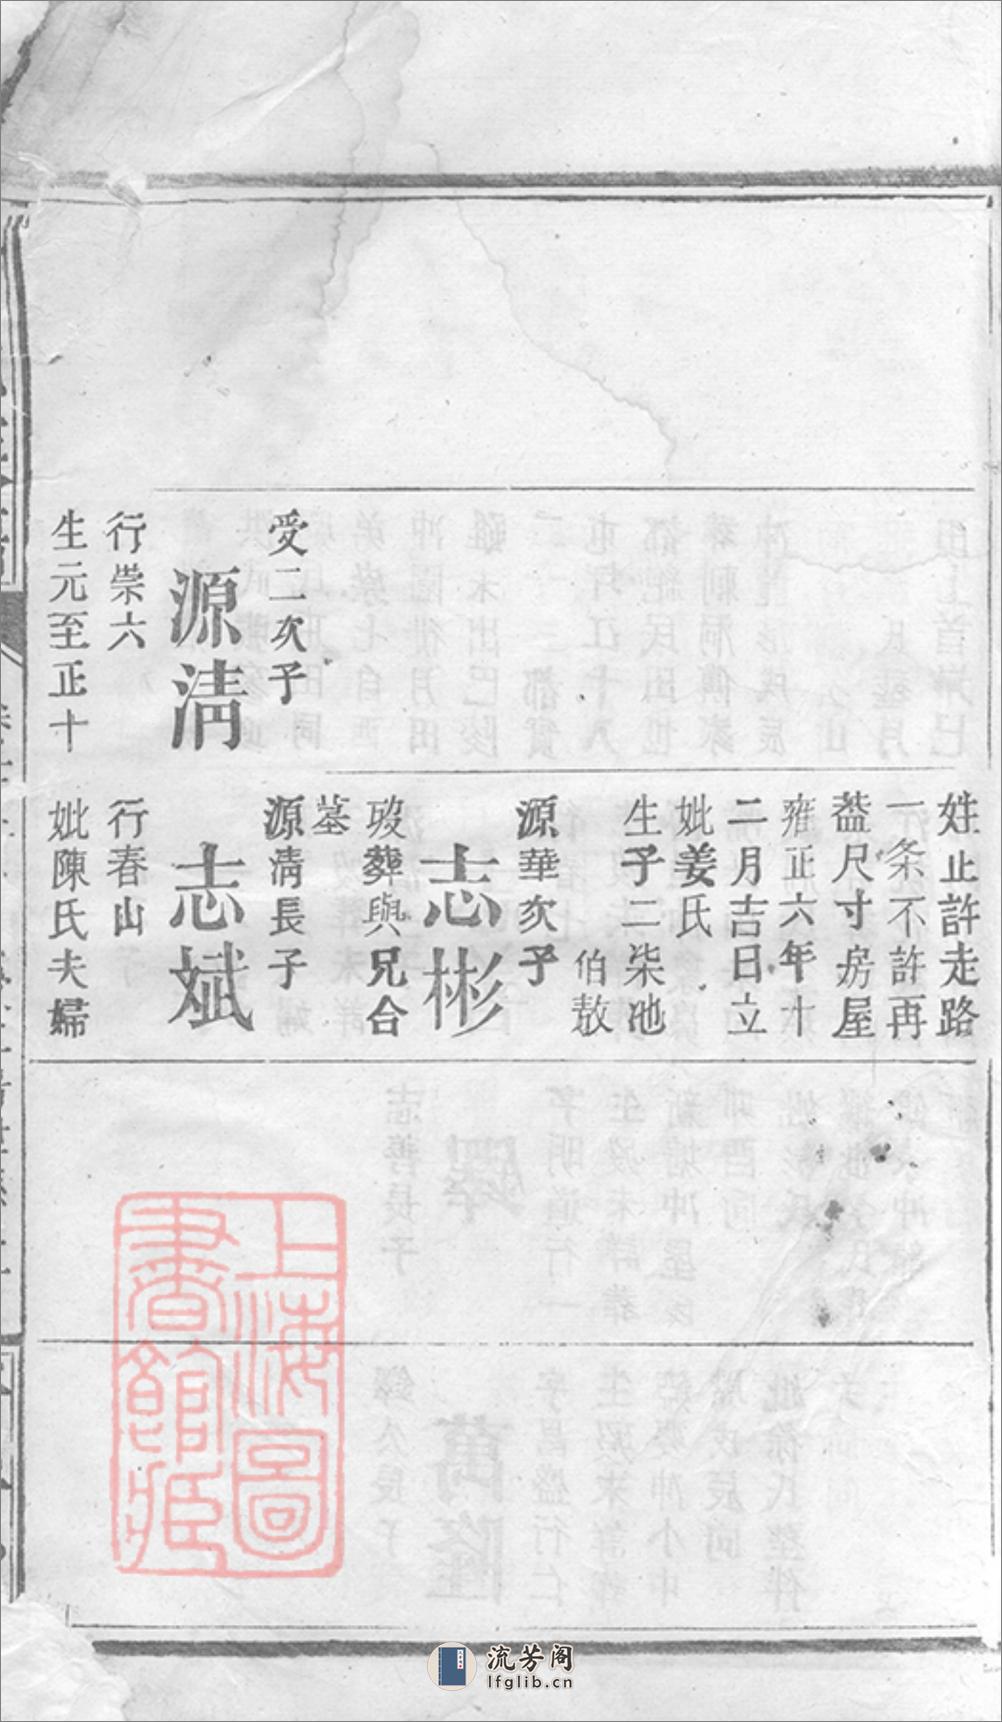 受二次子
源清
行崇六
生元至正十
姓止許走路
一条不許再
葢尺寸房屋
雍正六年十
二月吉日立
妣姜氏
生子二柒池
伯敖
源華次子
志彬
歿葬與兄合
墓
源清長子
志斌
行春山
妣陳氏夫婦
上海圖
書館藏
流芳阁
lfglib.cn